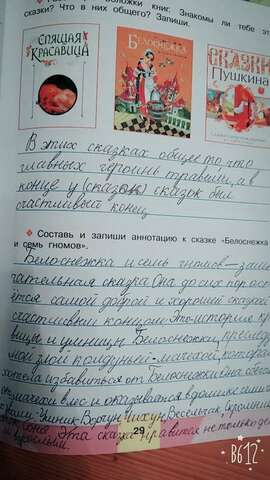 обложки книг. Знакомы ли тебе эт
сказки? Что в них общего? Запиши.
СПЯЩАЯ
КРАСАВИЦА
Белоснежка
СКАЗКИ
Пушкина
В этих сказках общее то, что
главных героинь травили, а в
конце у (сказок) сказок был
счастливый конец
Составь и запиши аннотацию к сказке «Белоснежка
и семь гномов».
Белоснежка и семь гномов – заме
чательная сказка. Она до сих пор оста
ётся самой доброй и хорошей сказкой
счастливым концом. Это история кра
вицы и умницы Белоснежки, преследу
мой злой колдуньей-мачехой, которая
хотела избавиться от Белоснежки. Она
от мачехи в лес и оказывается в домике семи
Умник Ворчун Чихун Весельчак, Скромни
Соня. Эта сказка нравится не только де
взрослым.
29
B612